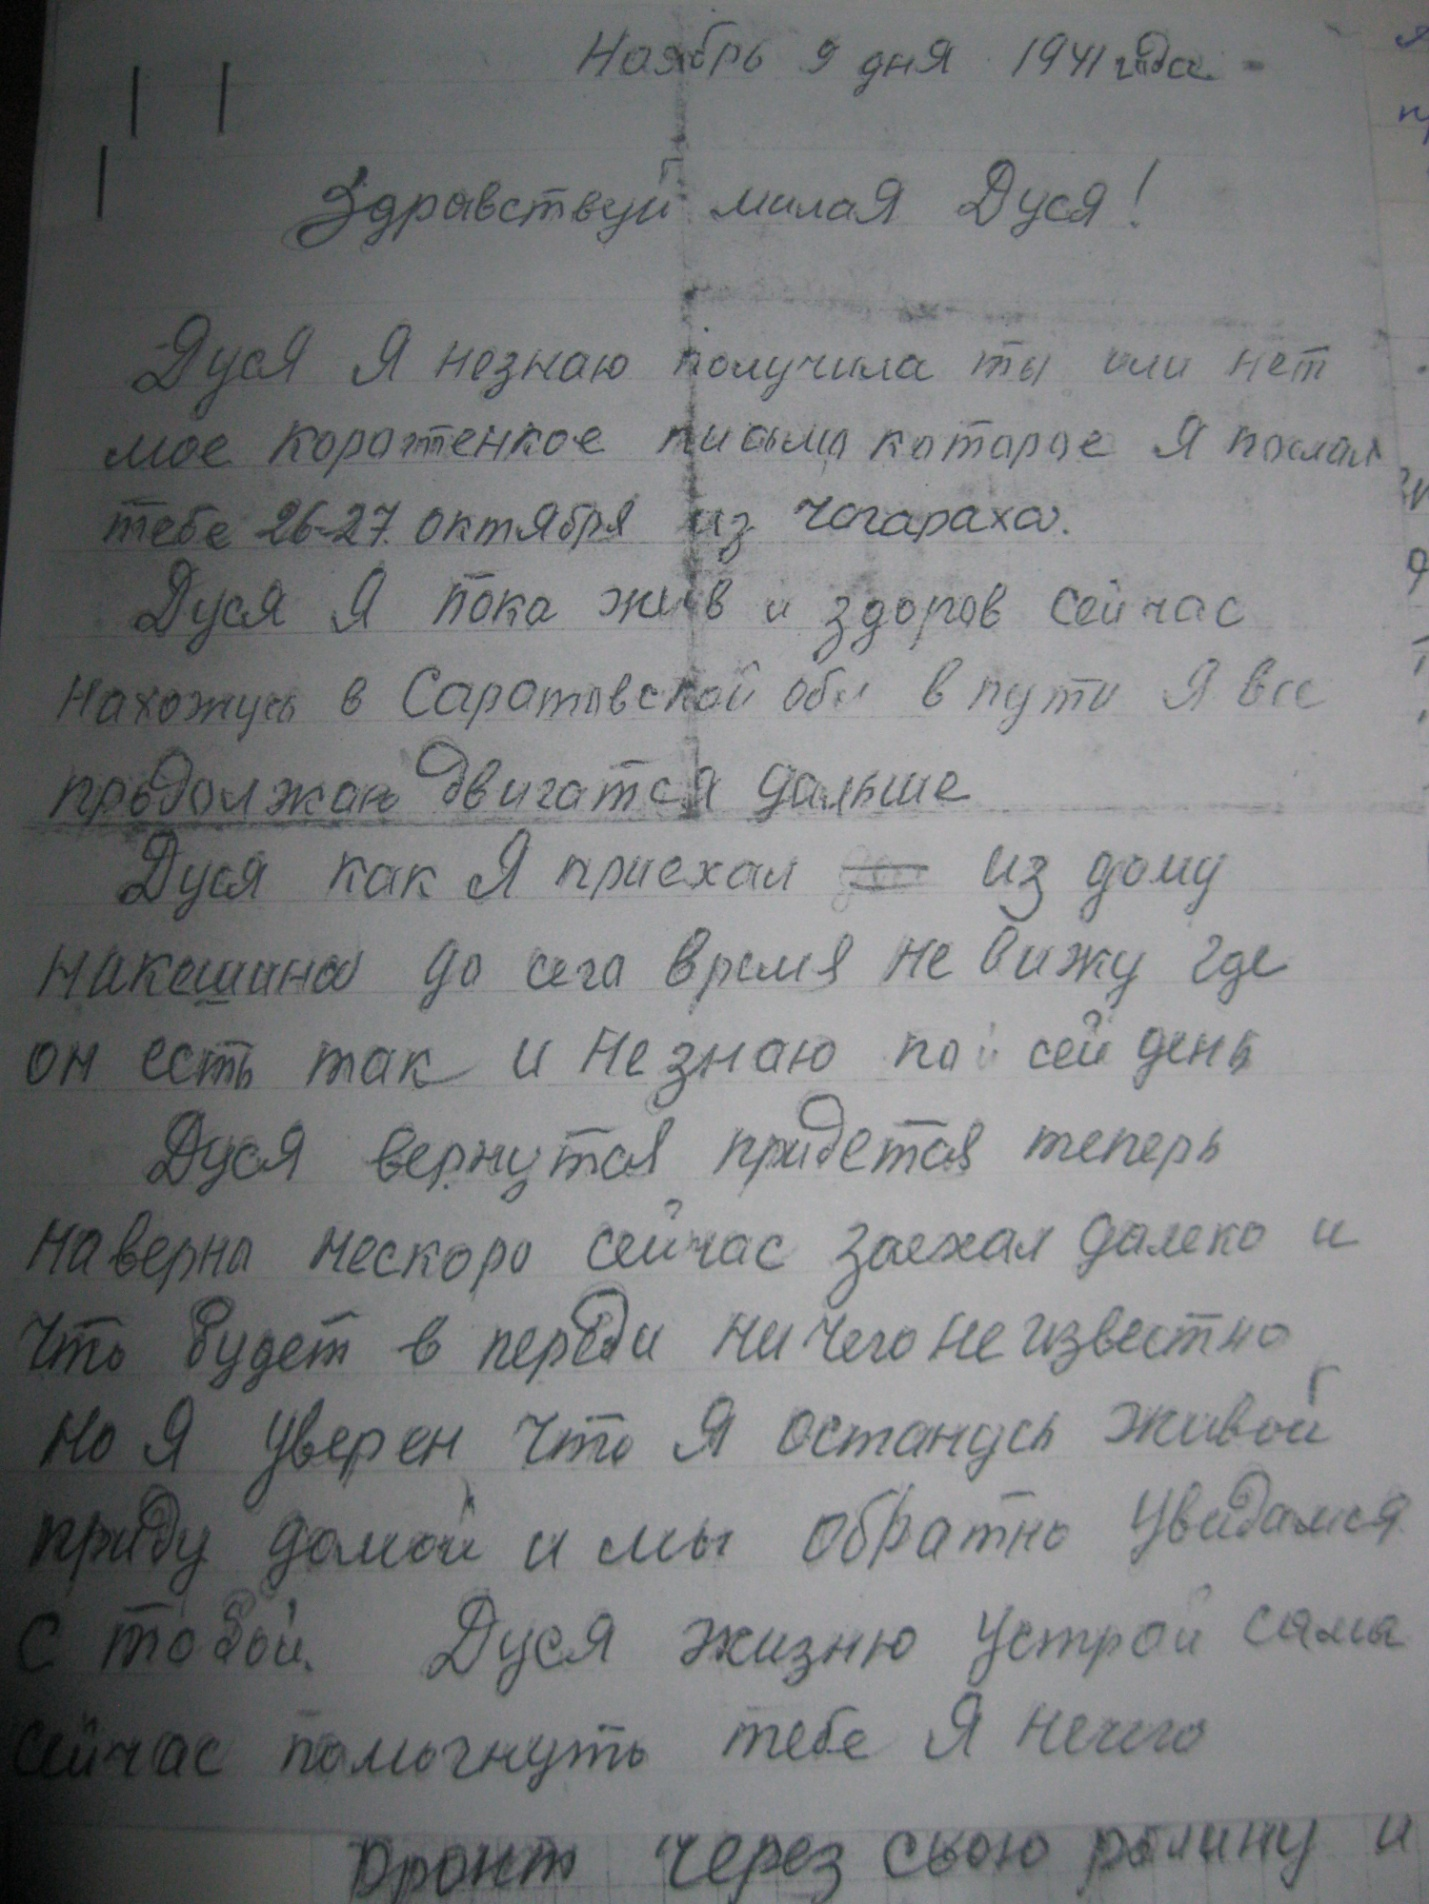 Ноябрь 9 дня 1941 года
Здравствуй милая Дуся!
Дуся Я незнаю получила ты или нет
мое коротенкое письмо которое Я послал
тебе 26-27 октября из Чагараха.
Дуся Я пока жив и здоров сейчас
нахожусь в Саратовской обл в пути Я все
продолжаю двигатся дальше
Дуся как Я приехал из дому
накошина до сега время не вижу где
он есть так и незнаю по сей день
Дуся вернутся придется теперь
наверно нескоро сейчас заехал далеко и
что будет в переди ни чего не известно
но Я уверен что Я останусь живой
приду домой и мы обратно увидамся
с тобой. Дуся жизню устрой сама
сейчас помочнуть тебе Я нечего
фронт через свою родину и